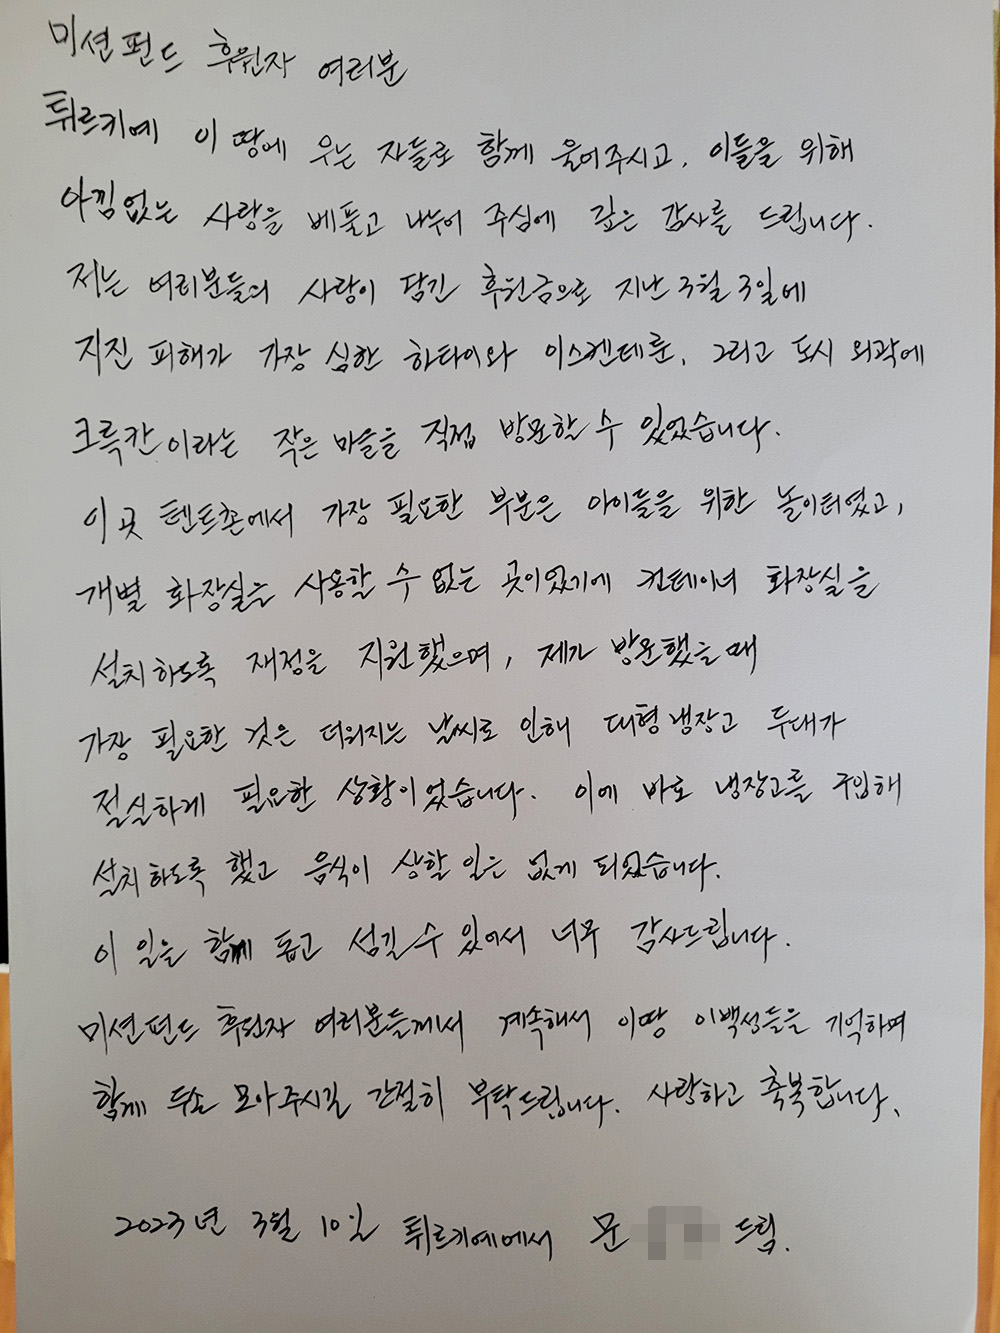 미션펀드 후원자 여러분
튀르키예 이 땅에 우는 자들로 함께 울어주시고, 이들을 위해
아낌없는 사랑을 베풀고 나누어 주심에 깊은 감사를 드립니다.
저는 여러분들의 사랑이 담긴 후원금으로 지난 3월 3일에
지진 피해가 가장 심한 하타이와 이스켄데룬, 그리고 도시 외곽에
크륵칸이라는 작은 마을을 직접 방문할 수 있었습니다.
이곳 텐트촌에서 가장 필요한 부분은 아이들을 위한 놀이터였고,
개별 화장실을 사용할 수 없는 곳이었기에 컨테이너 화장실을
설치하도록 재정을 지원했으며, 제가 방문했을때
가장 필요한 것은 더워지는 날씨로 인해 대형냉장고 두대가
절실하게 필요한 상황이었습니다. 이에 바로 냉장고를 구입해
설치하도록 했고 음식이 상할 일은 없게 되었습니다.
이 일을 함께 돕고 섬길 수 있어서 너무 감사드립니다.
미션펀드 후원자 여러분들께서 계속해서 이땅 이백성들을 기억하며
함께 두손 모아주시길 간절히 부탁드립니다. 사랑하고 축복합니다.
2023년 3월 10일 튀르키예에서 문 드림.